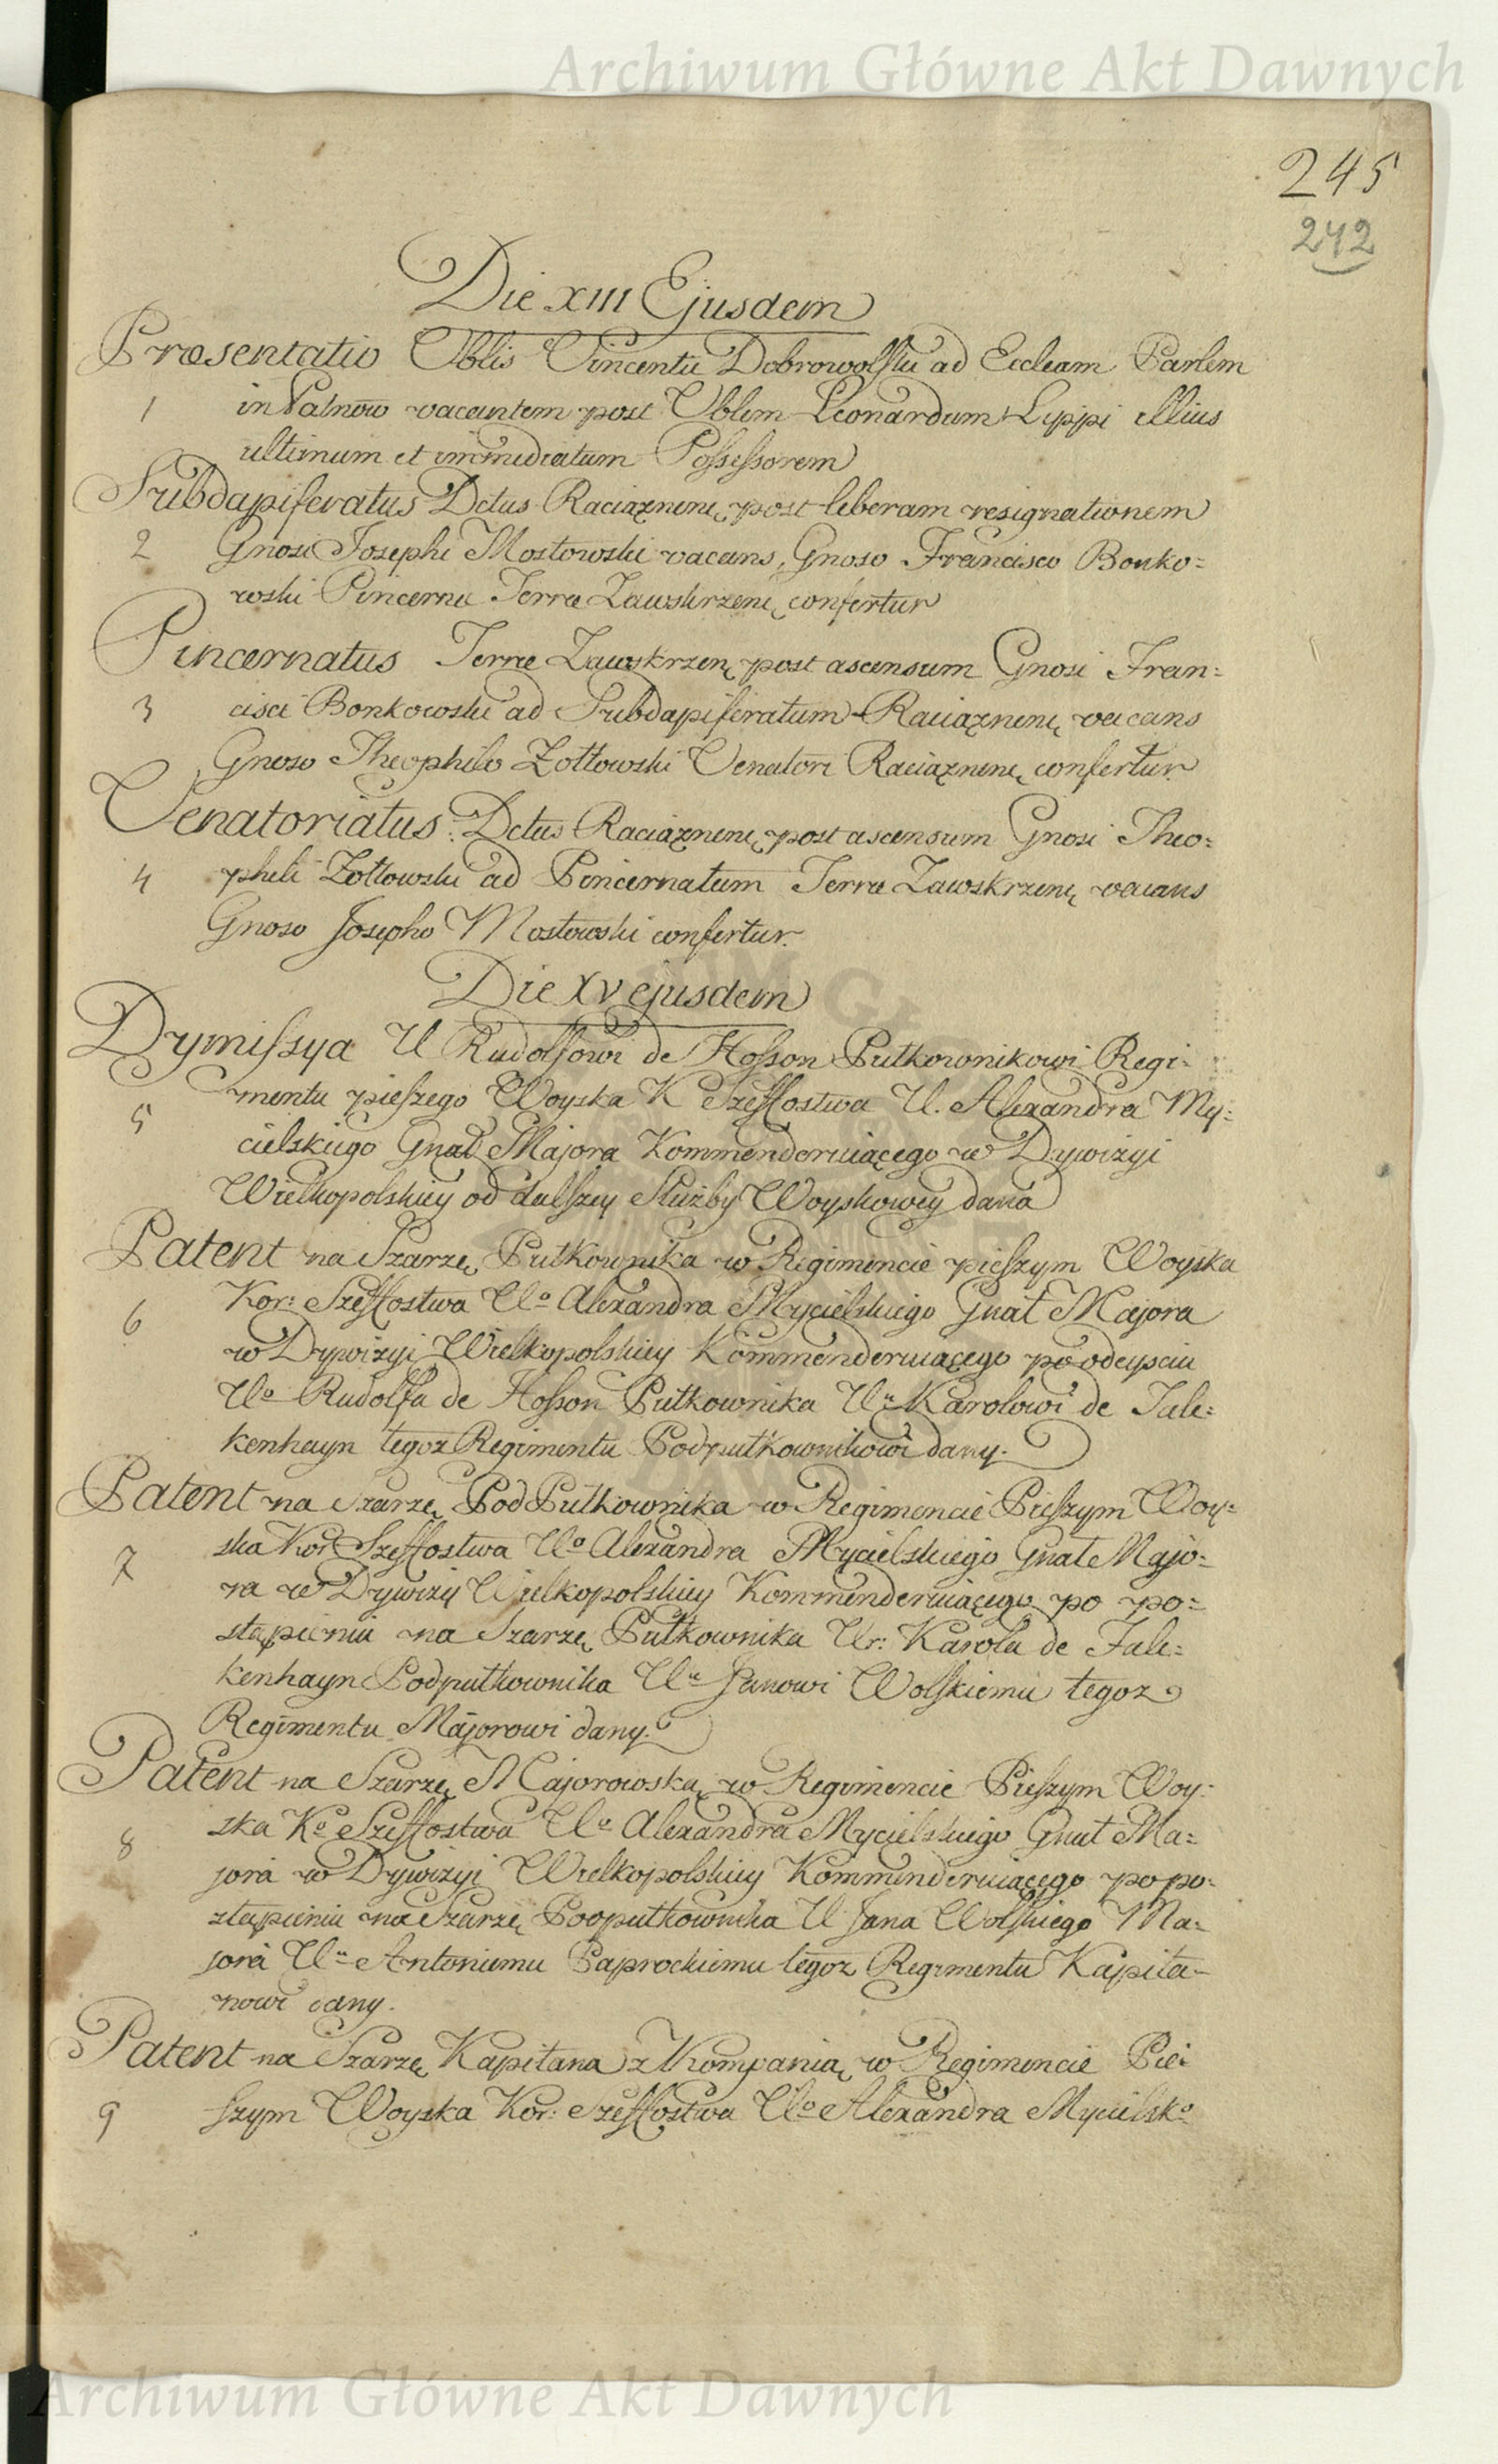 Archiwum Główne Akt Dawnych
245
242
Die XIII Ejusdem
Præsentatio Vblis Vincentii Dobrowolski ad Eccleam Parlem
1 in Patnow vacantem post Vblem Leonardum Lippi illius
ultimum et immediatum Possessorem
Subdapiferatus Dctus Raciąznen, post liberam resignationem
2 Gnosi Josephi Mostowski vacans, Gnoso Francisco Bonko=
wski Pincernæ Terræ Zawskrzen, confertur
Pincernatus Terræ Zawskrzen, post ascensum Gnosi Fran=
3 cisci Bonkowski ad Subdapiferatum Raciąznen, vacans
Gnoso Theophilo Zołtowski Venatori Raciąznen, confertur
Venatoriatus Dctus Raciąznen, post ascensum Gnosi Theo=
4 phili Zołtowski ad Pincernatum Terræ Zawskrzen, vacans
Gnoso Josepho Mostowski confertur.
Die XV ejusdem
Dymissya U Rudolfowi de Hosson Pułkownikowi Regi=
5 mentu pieszego Woyska K Szeffostwa U. Alexandra My=
cielskiego Gnał Majora Kommenderuiącego w Dywizyi
Wielkopolskiey od dalszey Służby Woyskowey dana
Patent na Szarzę Pułkownika w Regimencie pieszym Woyska
6 Kor: Szeffostwa Uo Alexandra Mycielskiego Gnał Majora
w Dywizyi Wielkopolskiey Kommenderuiącego po odeysciu
Uo Rudolfa de Hosson Pułkownika Uu Karolowi de Fale=
kenhayn tegoz Regimentu Podpułkownikowi dany.
Patent na Szarzę PodPułkownika w Regimencie Pieszym Woy=
7 ska Kor Szeffostwa Uo Alexandra Mycielskiego Gnał Majo=
ra w Dywizyi Wielkopolskiey Kommenderuiącego po po=
stąpieniu na Szarzę Pułkownika Ur: Karola de Fale=
kenhayn Podpułkownika Uu Janowi Wolskiemu tegoz
Regimentu Majorowi dany.
Patent na Szarzę Majorowską w Regimencie Pieszym Woy=
8 ska Ko Szeffostwa Uo Alexandra Mycielskiego Gnał Ma=
jora w Dywizyi Wielkopolskiey Kommenderuiącego po po=
stąpieniu na Szarzę Podpułkownika U Jana Wolskiego Ma=
jora Uu Antoniemu Paprockiemu tegoz Regimentu Kapita=
nowi dany.
Patent na Szarzę Kapitana z Kompanią w Regimencie Pie=
9 szym Woyska Kor: Szeffostwa Uo Alexandra Mycielsko
Archiwum Główne Akt Dawnych